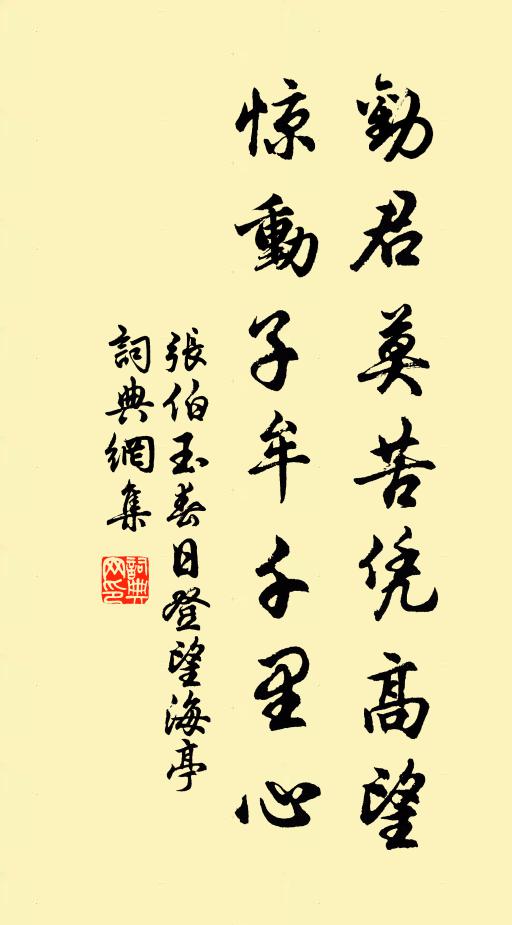 勸君莫苦凭高望
惊動子牟千里心
張伯玉春日登望海亭
詞典網集
詞典网印